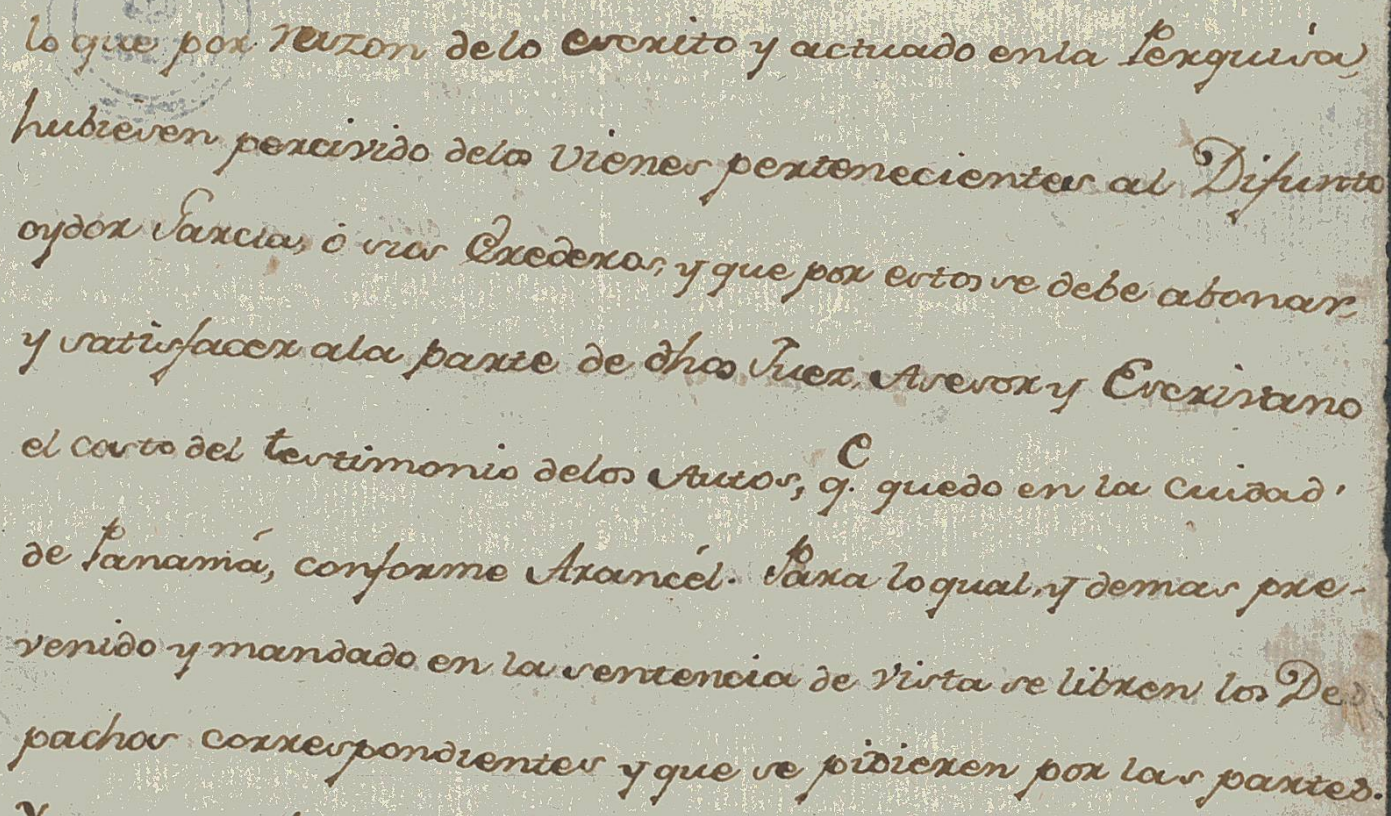 lo que por razon delo escrito y actuado enla Perquisa
hubiesen percivido delos vienes pertenecientes al Difunto
oydor Garcia, ó sus Erederos, y que por estos se debe abonar
y satisfacer ala parte de dhos Juez, Asesor y Escrivano
el costo del testimonio delos Autos, q.e quedo en la Ciudad
de Panamá, conforme Arancél. Para lo qual, y demas pre-
venido y mandado en la sentencia de vista se libren los Des
pachos correspondientes y que se pidieren por las partes.
Y